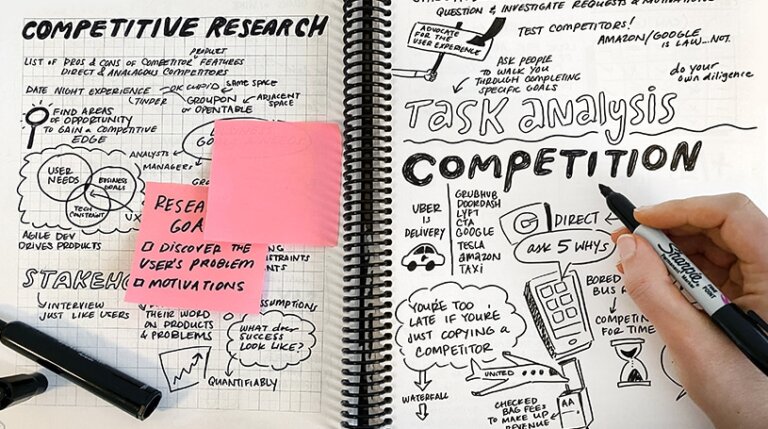 COMPETITIVE RESEARCH
PRODUCT
LIST OF PROS & CONS OF COMPETITOR FEATURES
DIRECT & ANALAGOUS COMPETITORS
DATE NIGHT EXPERIENCE
OK CUPID
SAME SPACE
TINDER
GROUPON
OR OPENTABLE
ADJACENT
SPACE
FIND AREAS
OF OPPORTUNITY
TO GAIN A COMPETITIVE
EDGE
ANALYSTS
MANAGERS
USER
NEEDS
BUSINESS
GOALS
TECH
CONSTRAINT
UX
AGILE DEV
DRIVES PRODUCTS
RESEA
GOA
DISCOVER THE
USER'S PROBLEM
MOTIVATIONS
STAKEH
INTERVIEW
JUST LIKE USERS
THEIR WORD
ON PRODUCTS
& PROBLEMS
SSUMPTIONS
WHAT does
SUCCESS
LOOK LIKE?
QUANTIFIABLY
QUESTION & INVESTIGATE REQUESTS & MOTIVATIONS
ADVOCATE
FOR THE
USER EXPERIENCE
TEST COMPETITORS!
AMAZON/GOOGLE
IS LAW...NOT.
ASK PEOPLE
TO WALK YOU
THROUGH COMPLETING
SPECIFIC GOALS
do your
own diligence
Task analysis
COMPETITION
UBER
IS
DELIVERY
GRUBHUB
DOORDASH
LYFT
CTA
GOOGLE
TESLA
amazon
TAXI
G
DIRECT
ask 5 WHYS
BORED
BUS
COMPETIN
FOR TIME
YOU'RE TOO
LATE IF YOU'RE
JUST COPYING A
COMPETITOR
WATERFALL
UNITED
CHECKED
BAG FEES
TO MAKE UP
REVENUE
AA
Sharpie